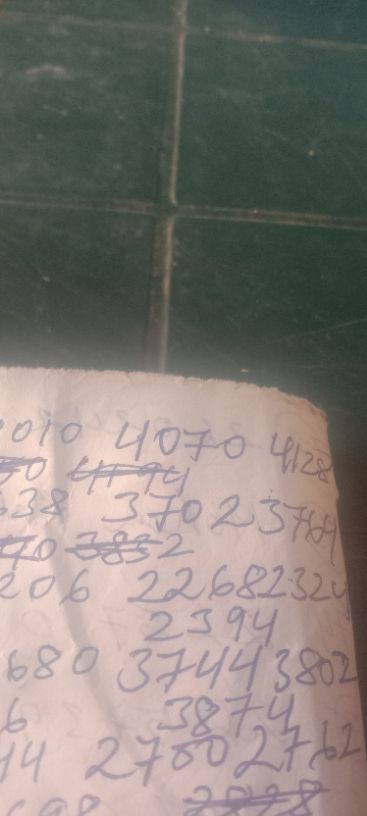 010 4070 4128
0 4194
638 3702 3764
70 3832
206 2268 2324
2394
680 3744 3802
6 3874
44 2700 2762
698